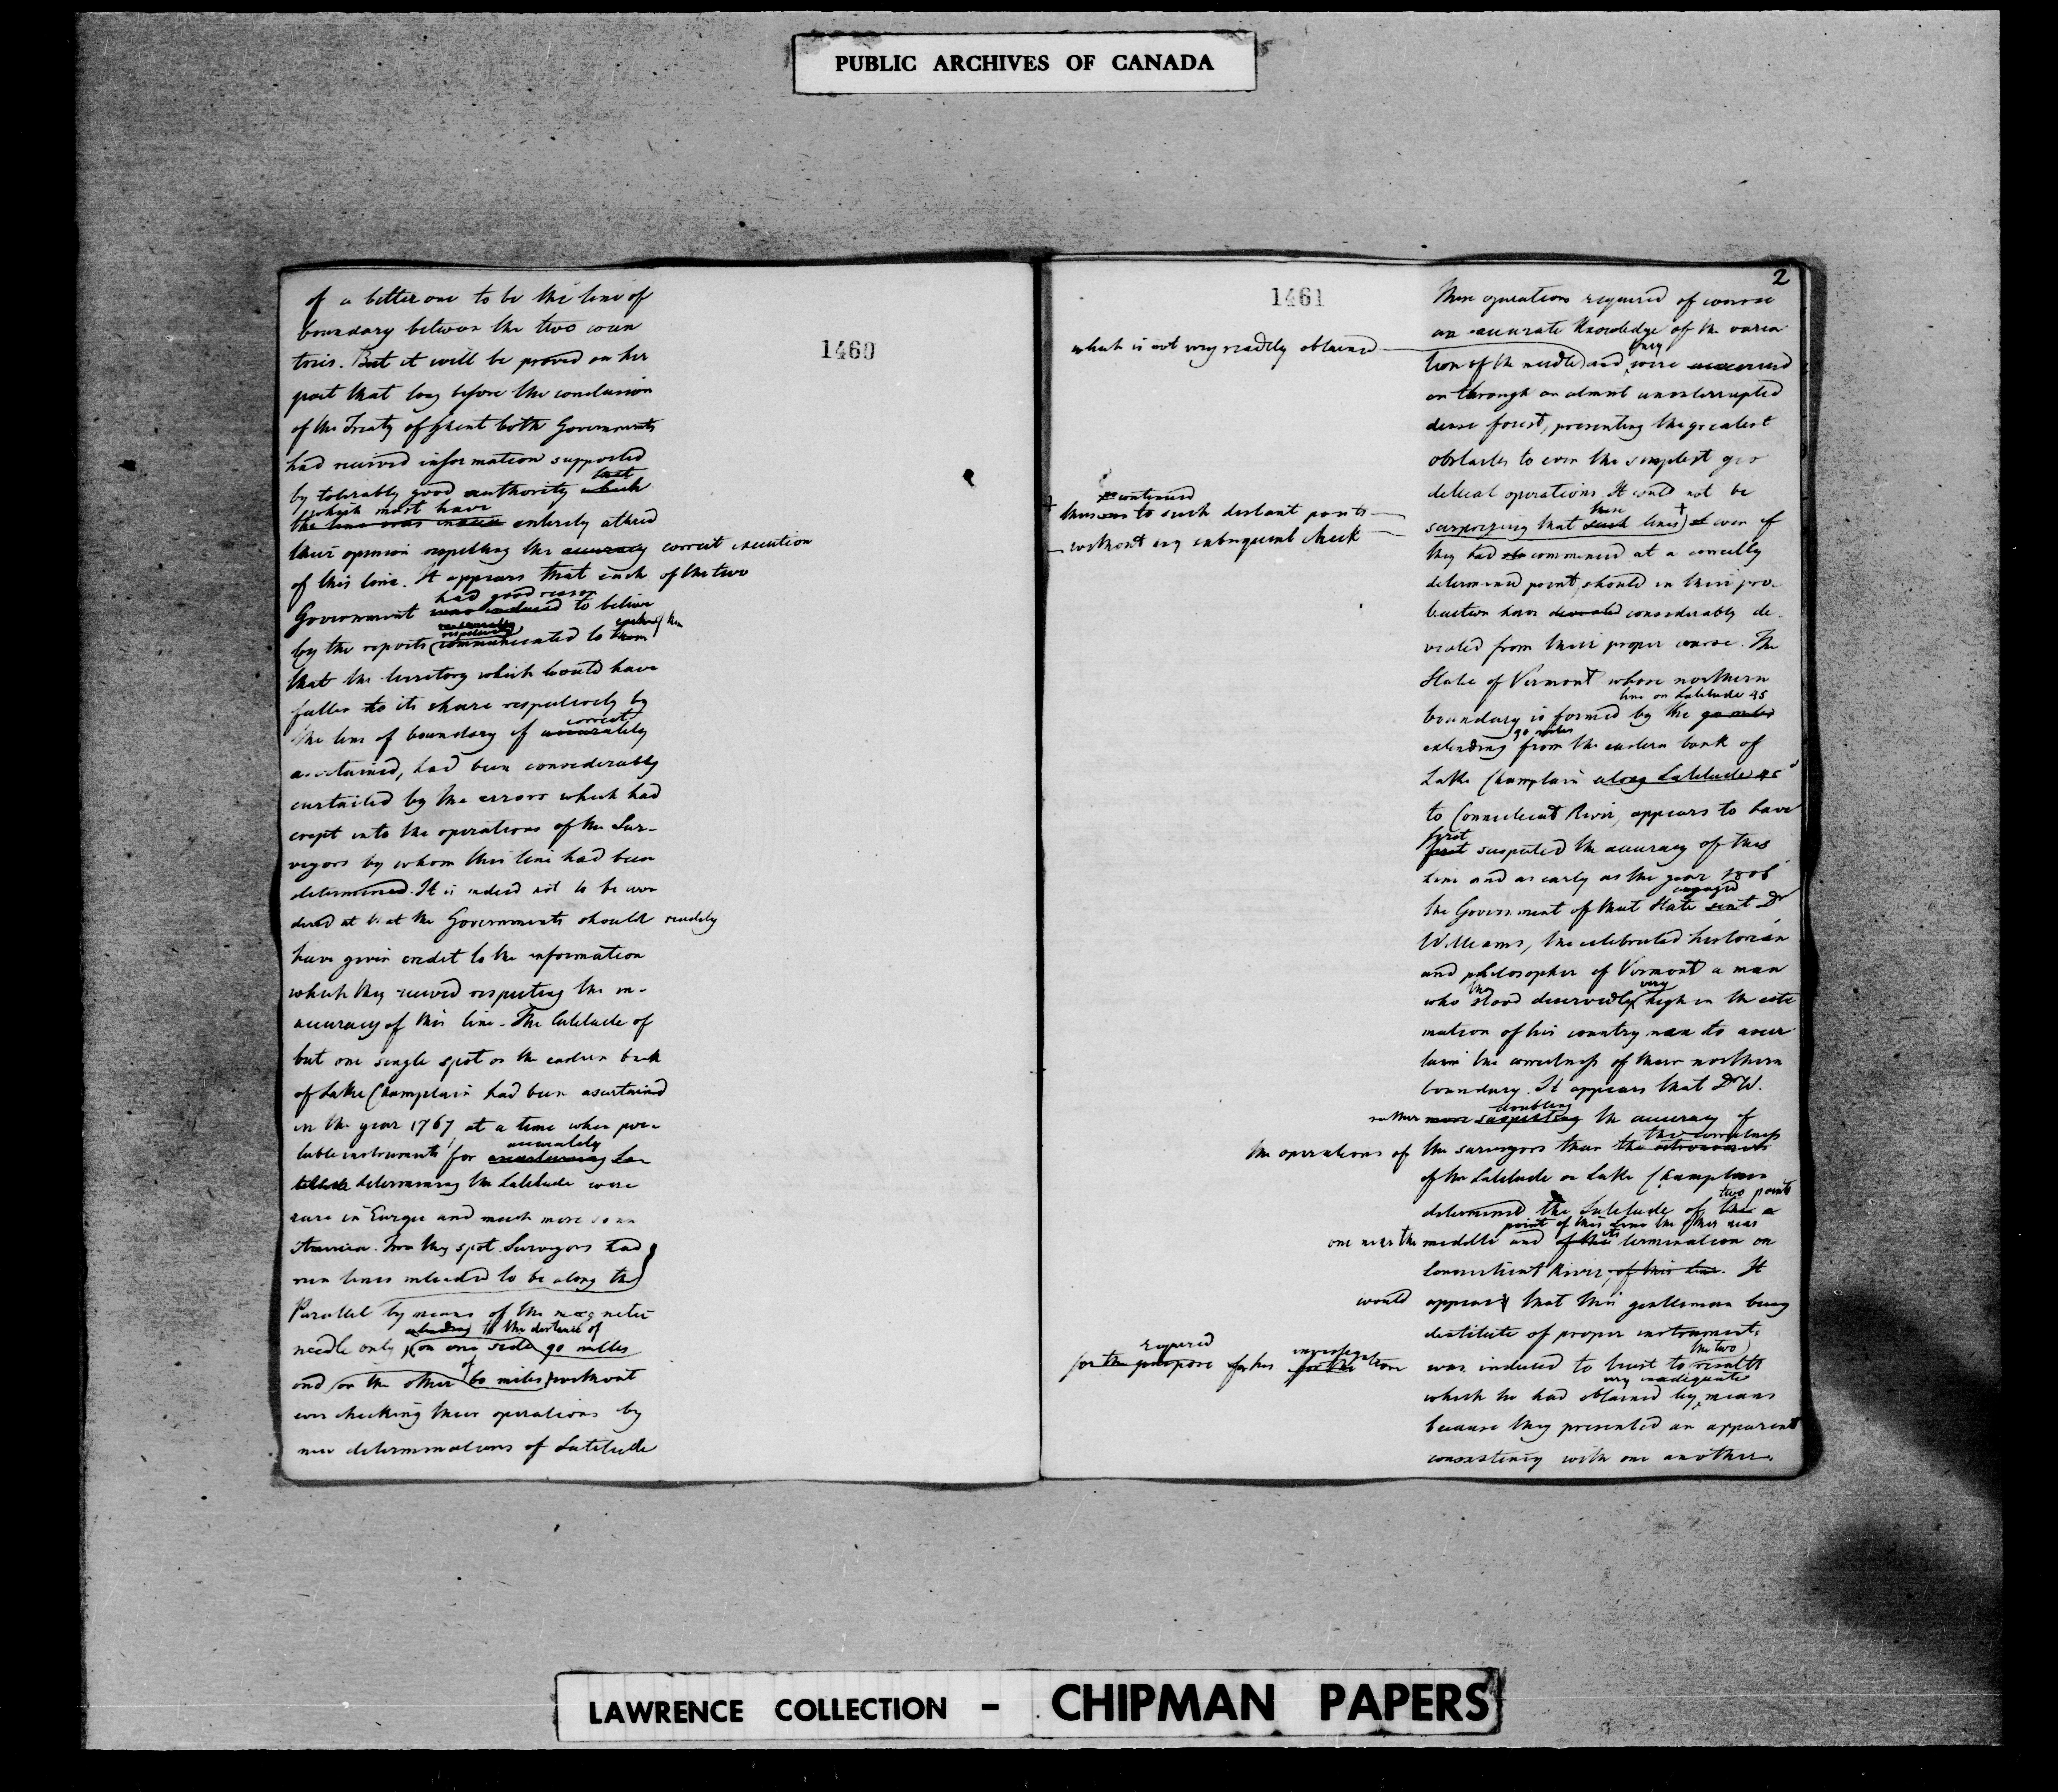 PUBLIC ARCHIVES OF CANADA
1460
of a better one to be the line of
boundary between the two coun
tries. But it will be proved on her
part that long before the conclusion
of the Treaty of Ghent both Governments
had received information supported
that
by tolerably good authority which
which must have
the line was entirely altered
their opinion respecting the accuracy correct execution
of this line. It appears that each of the two
had good reason
Government was induced to believe
respectively
by the reports communicated to them
that the territory which would have
fallen to its share respectively by
correctly
the line of boundary if accurately
ascertained, had been considerably
curtailed by the errors which had
crept into the operations of the Sur-
veyors by whom this line had been
determined. It is indeed not to be won
dered at that the Governments should readily
have given credit to the information
which they received respecting the in-
accuracy of this line - The latitude of
but one single spot on the eastern bank
of Lake Champlain had been ascertained
in the year 1767 at a time when por-
accurately
table instruments for ascertaining La
titude determining the Latitude were
rare in Europe and much more so in
America. From this spot Surveyors had
run lines intended to be along the
Parallel by means of the magnetic
extending to the distance of
needle only on one side 90 miles
of
and on the other 60 miles without
ever checking their operations by
new determinations of Latitude
2
1461
These operations required of course
an accurate Knowledge of the varia
which is not very readily obtained
they
tion of the needle and were
on through an almost uninterrupted
dense forest, presenting the greatest
obstacles to even the simplest geo
detical operations. It could not be
these
surprizing that such lines if even if
continued
thus to such distant parts
without any subsequent check
they had commenced at a correctly
determined point, should in their pro-
traction have deviated considerably de-
viated from their proper course. The
State of Vermont whose northern
line on Latitude 45
boundary is formed by the 90 miles
90 miles
extending from the eastern bank of
Lake Champlain along Latitude 45°
to Connecticut River, appears to have
first
first suspected the accuracy of this
line and as early as the year 1806
engaged
the Government of that State sent Dr
Williams, the celebrated historian
and philosopher of Vermont a man
then very
who stood deservedly high in the esti
mation of his country men to ascer
tain the correctness of their northern
boundary. It appears that Dr W.
doubting
rather more suspecting the accuracy of
the correctness
the operations of the surveyors than the
of the Latitude on Lake Champlain
two points
determined the Latitude of the
point of this line the other near
one near the middle and of the its termination on
Connecticut River, of this line. It
would appear that this gentleman being
destitute of proper instruments
required investigation
for the purpose for his for the
the two
was induced to trust to results
very inadequate
which he had obtained by means
because they presented an apparent
consistency with one another.
LAWRENCE COLLECTION - CHIPMAN PAPERS